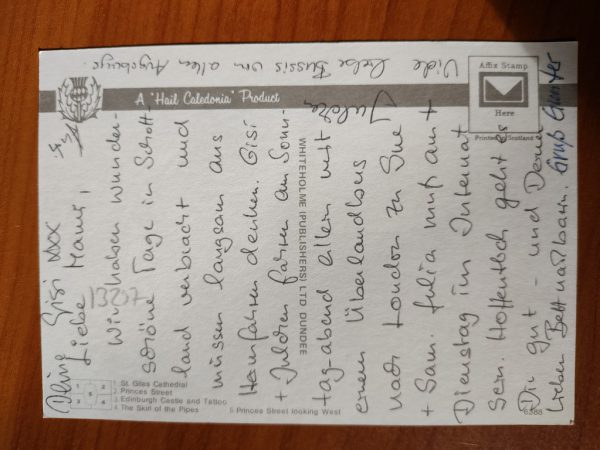 Deine Gisi xxx
13207
Liebe Mami,
Wir haben wunder-
schöne Tage in Schott-
land verbracht und
müssen langsam ans
Heimfahren denken. Gisi
+ Julchen fahren am Sonn-
tag-abend allein mit
einem Überlandbus
nach London zu Sue
+ Sam. Julia muß am
Dienstag im Internat
sein. Hoffentlich geht es
Dir gut - und Deine
lieben Bett
Gruß Günter
Viele liebe Bussis von allen
Julchen
A "Hail Caledonia" Product
WHITEHOLME (PUBLISHERS) LTD DUNDEE
Affix Stamp
Here
Printed in Scotland
1 2 3 4 5
1 St. Giles Cathedral
2 Princes Street
3 Edinburgh Castle and Tattoo
4 The Skirl of the Pipes
5 Princes Street looking West
6388